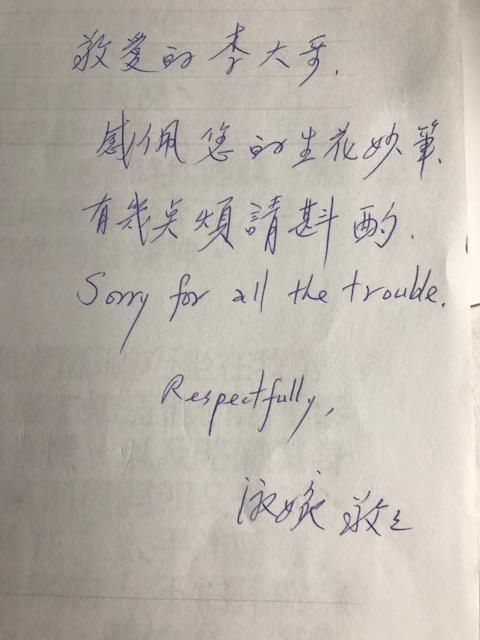 敬愛的李大哥.
感佩您的生花妙筆.
有幾点煩請斟酌.
Sorry for all the trouble.
Respectfully,
敬上